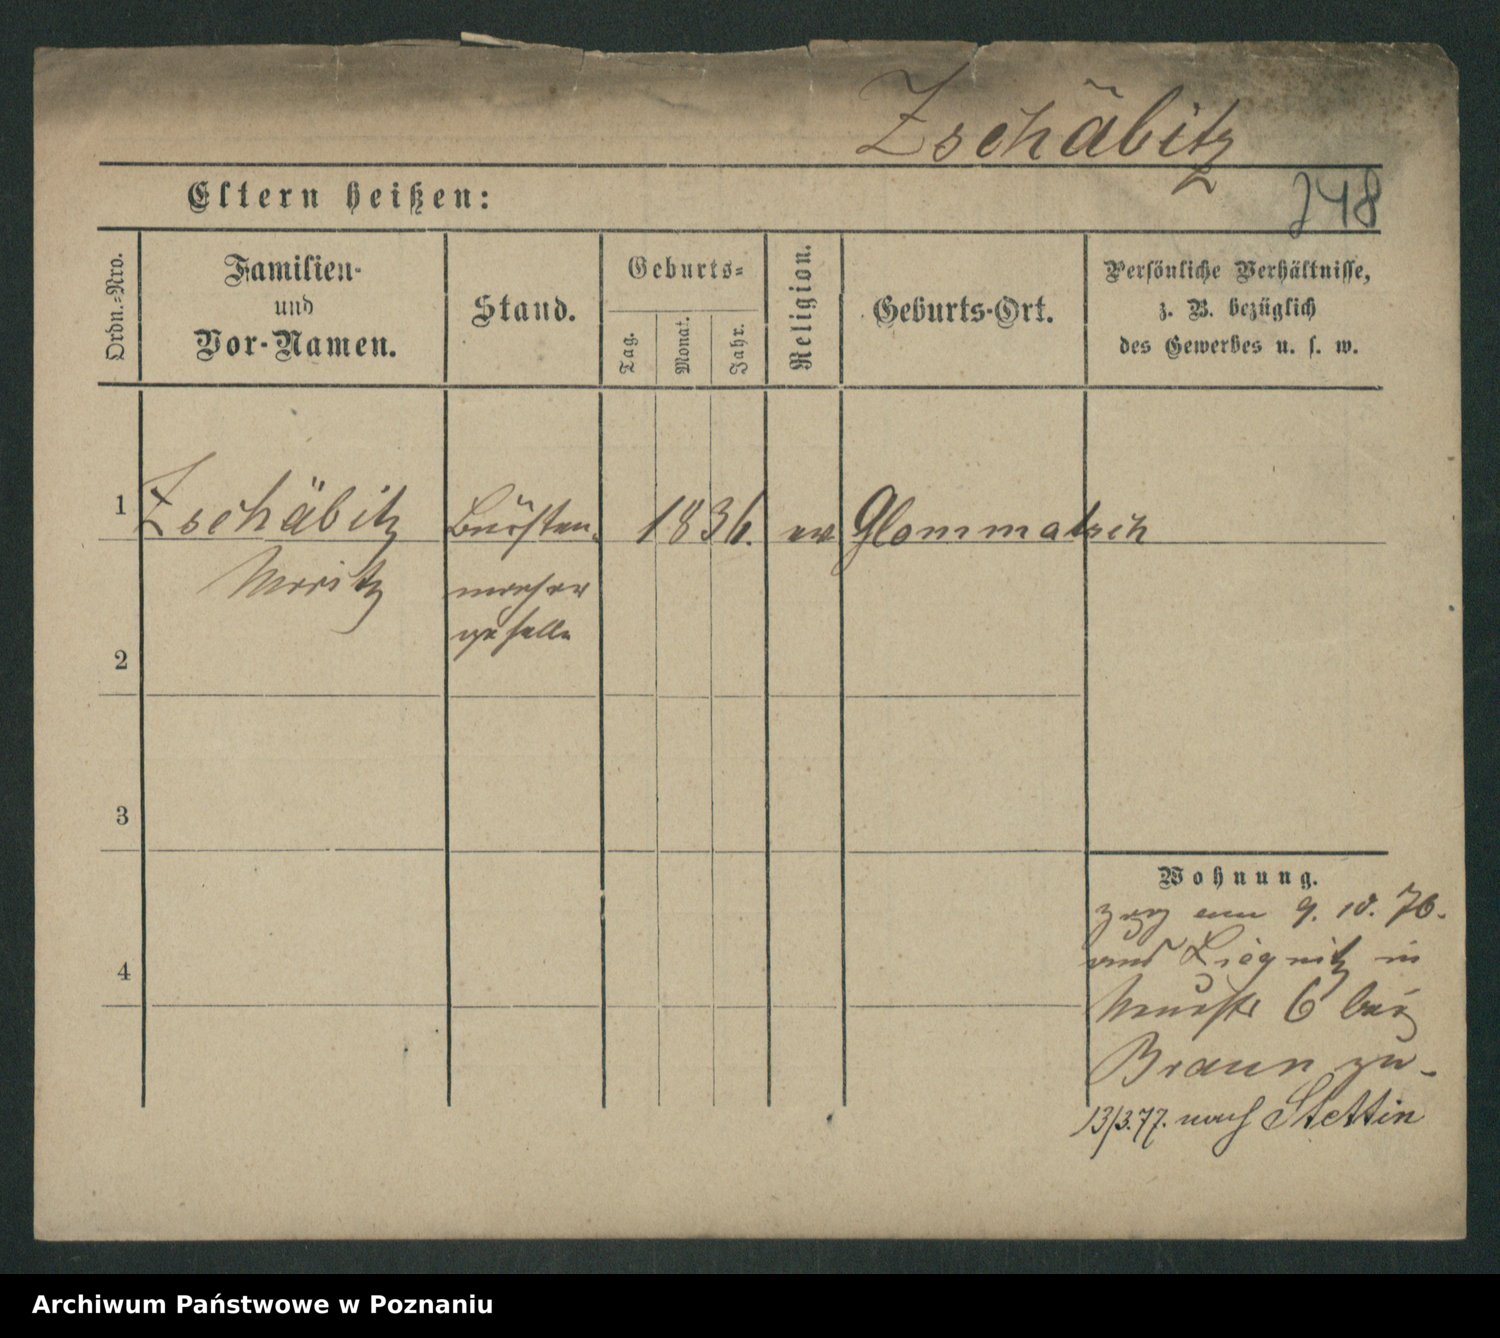 Zschäbitz
Eltern heißen:
748
Ordn.-Nro.
Familien-
und
Vor-Namen.
Stand.
Geburts-
Tag.
Monat.
Jahr.
Religion.
Geburts-Ort.
Persönliche Verhältnisse,
z. B. bezüglich
des Gewerbes u. s. w.
1
Zschäbitz
Bürsten-
1836.
ev
Glommatsch
Moritz
macher
geselle
2
3
4
Wohnung.
zog am 9. 10. 76.
aus Liegnitz in
Neuestr 6 bei
Braun zu-
13/3.77. nach Stettin
Archiwum Państwowe w Poznaniu